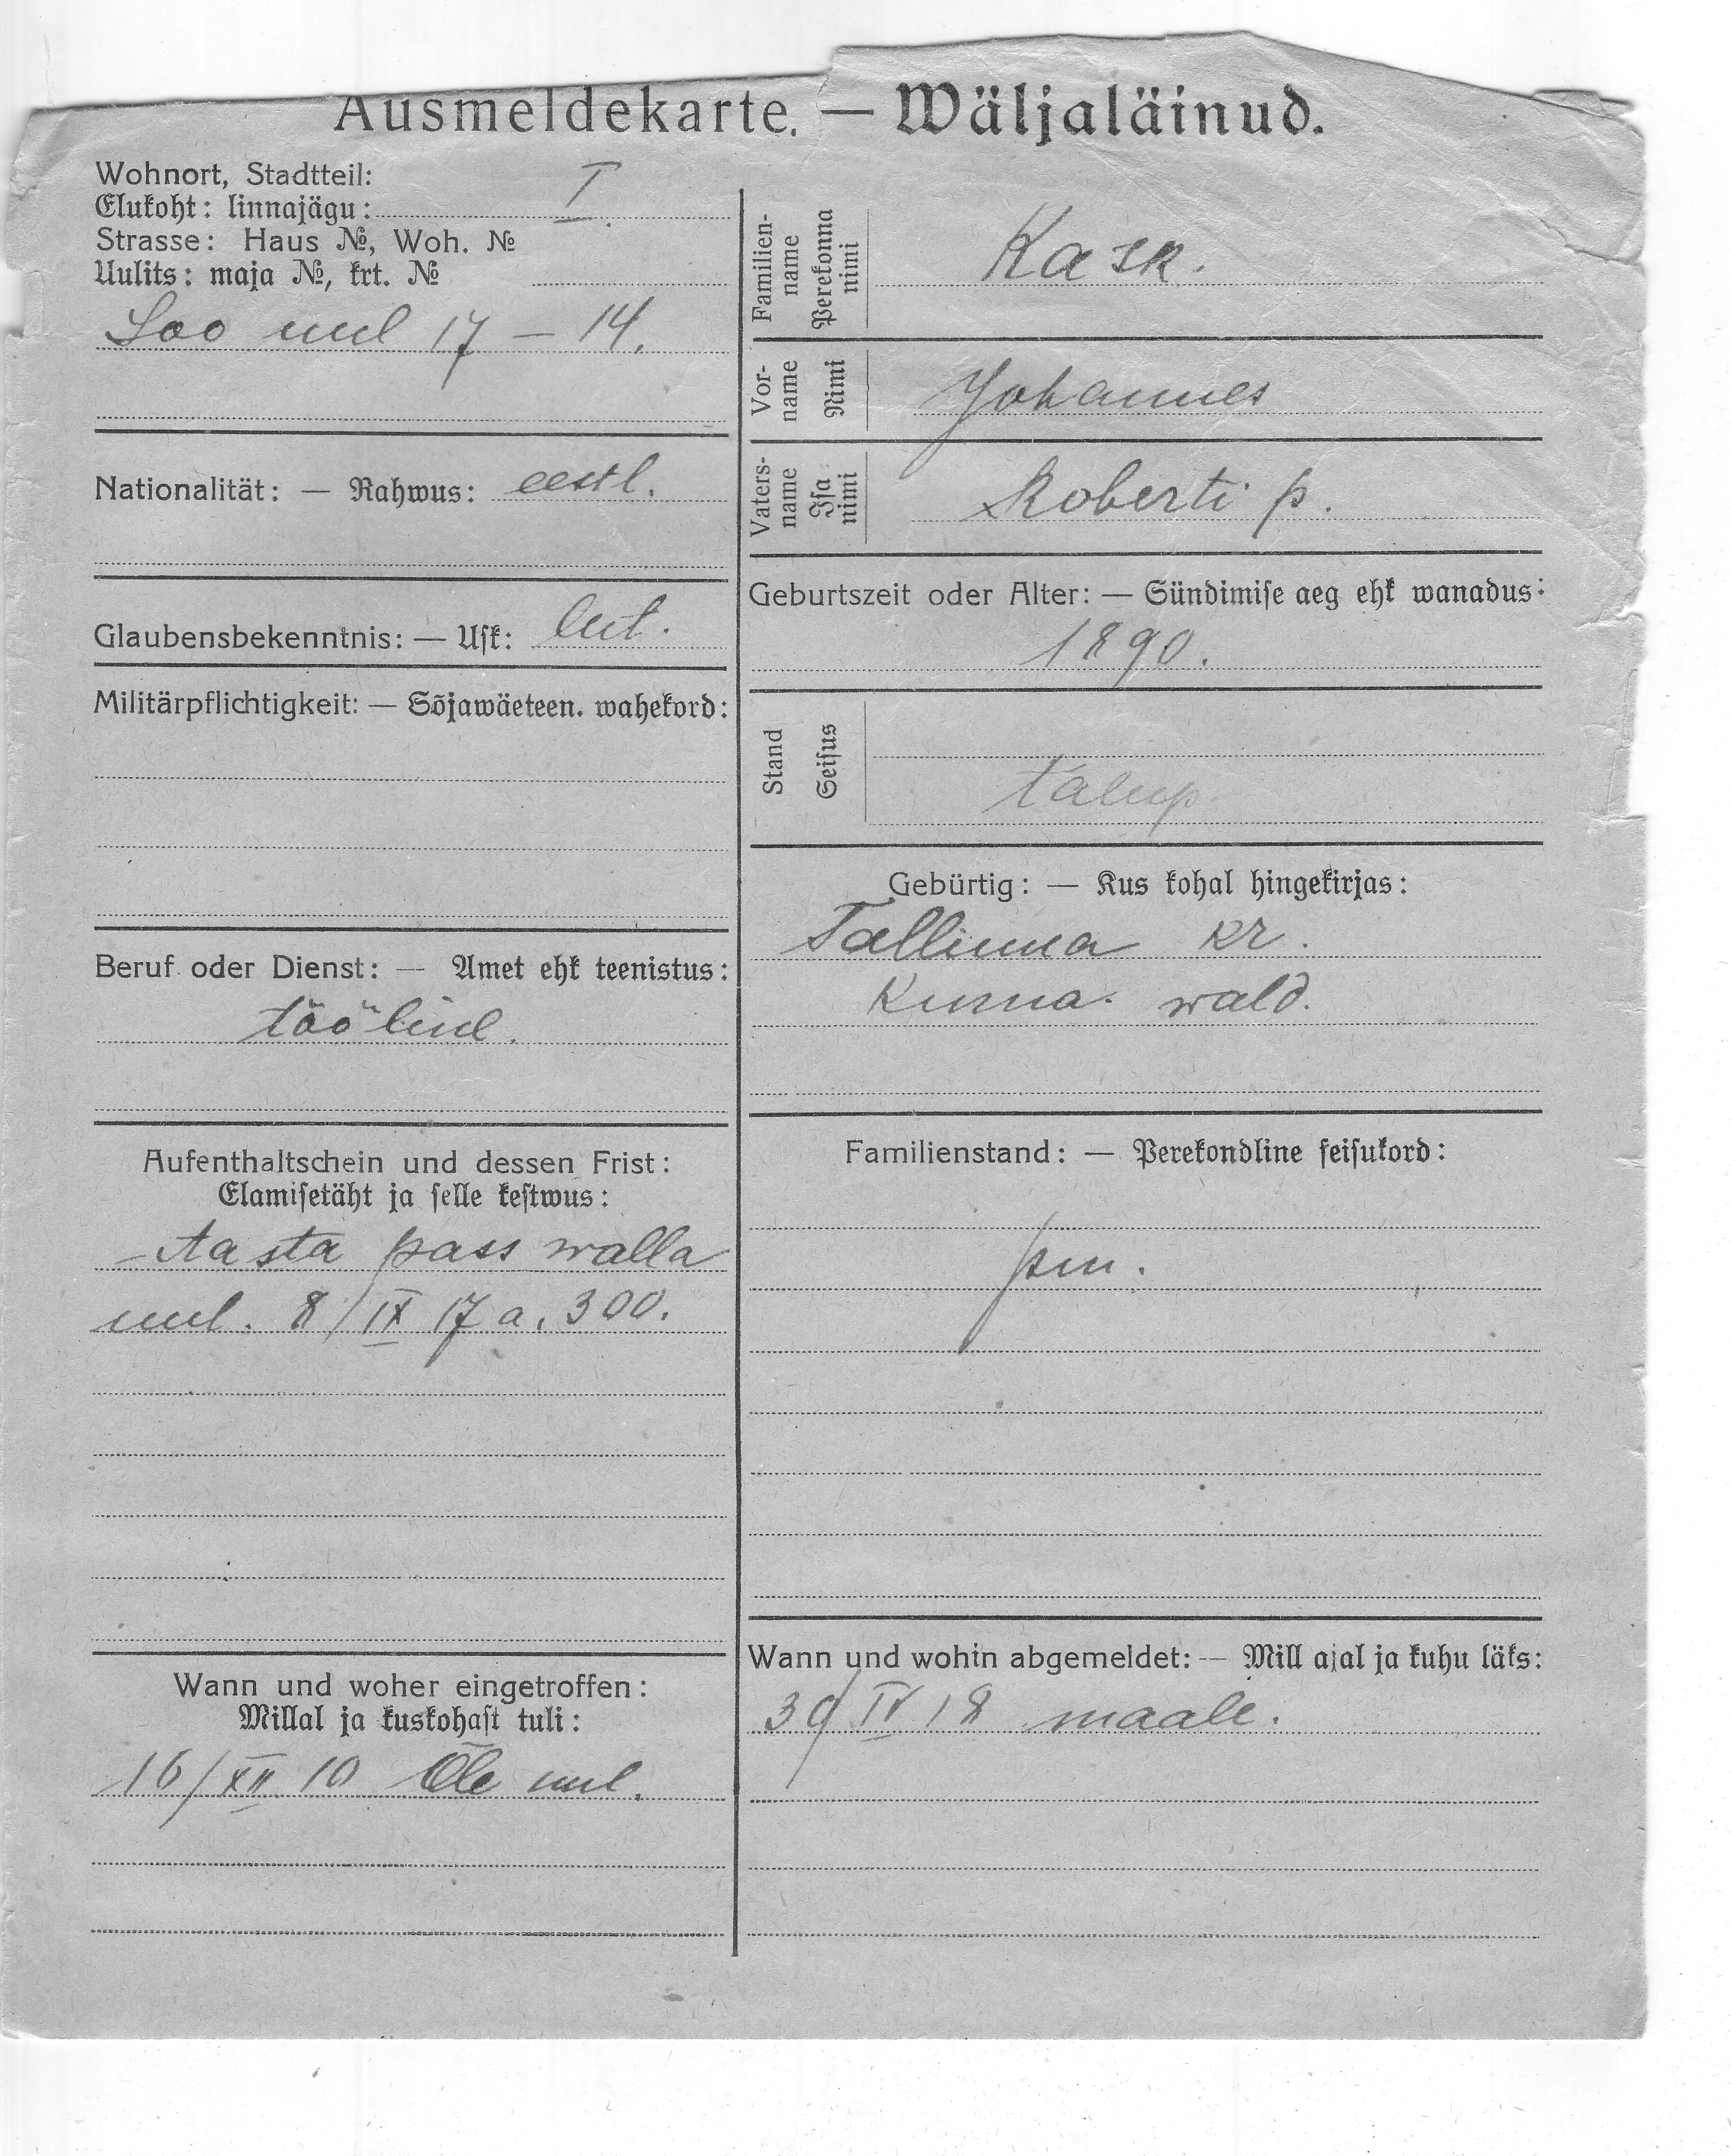 Ausmeldekarte. — Wäljaläinud.
Wohnort, Stadtteil:
Elukoht: linnajägu: I
Strasse: Haus №, Woh. №
Uulits: maja №, krt. №
Soo uul 17 — 14.
Nationalität: — Rahwus: eestl.
Glaubensbekenntnis: — Usk: lut.
Militärpflichtigkeit: — Sõjawäeteen. wahekord:
Beruf oder Dienst: — Amet ehk teenistus:
tööline.
Aufenthaltschein und dessen Frist:
Elamisetäht ja selle kestwus:
Aasta pass walla
uul. 8/IX 17 a. 300.
Wann und woher eingetroffen:
Millal ja kuskohast tuli:
16/XII 10 Õle uul.
Familien-
name
Perekonna
nimi
Kask.
Vor-
name
Nimi
Johannes
Vaters-
name
Isa
nimi
Roberti p.
Geburtszeit oder Alter: — Sündimise aeg ehk wanadus:
1890.
Stand
Seisus
talup.
Gebürtig: — Kus kohal hingekirjas:
Tallinna kr.
Kurna wald.
Familienstand: — Perekondline seisukord:
pm.
Wann und wohin abgemeldet: — Mill ajal ja kuhu läks:
30/IV 18 maale.